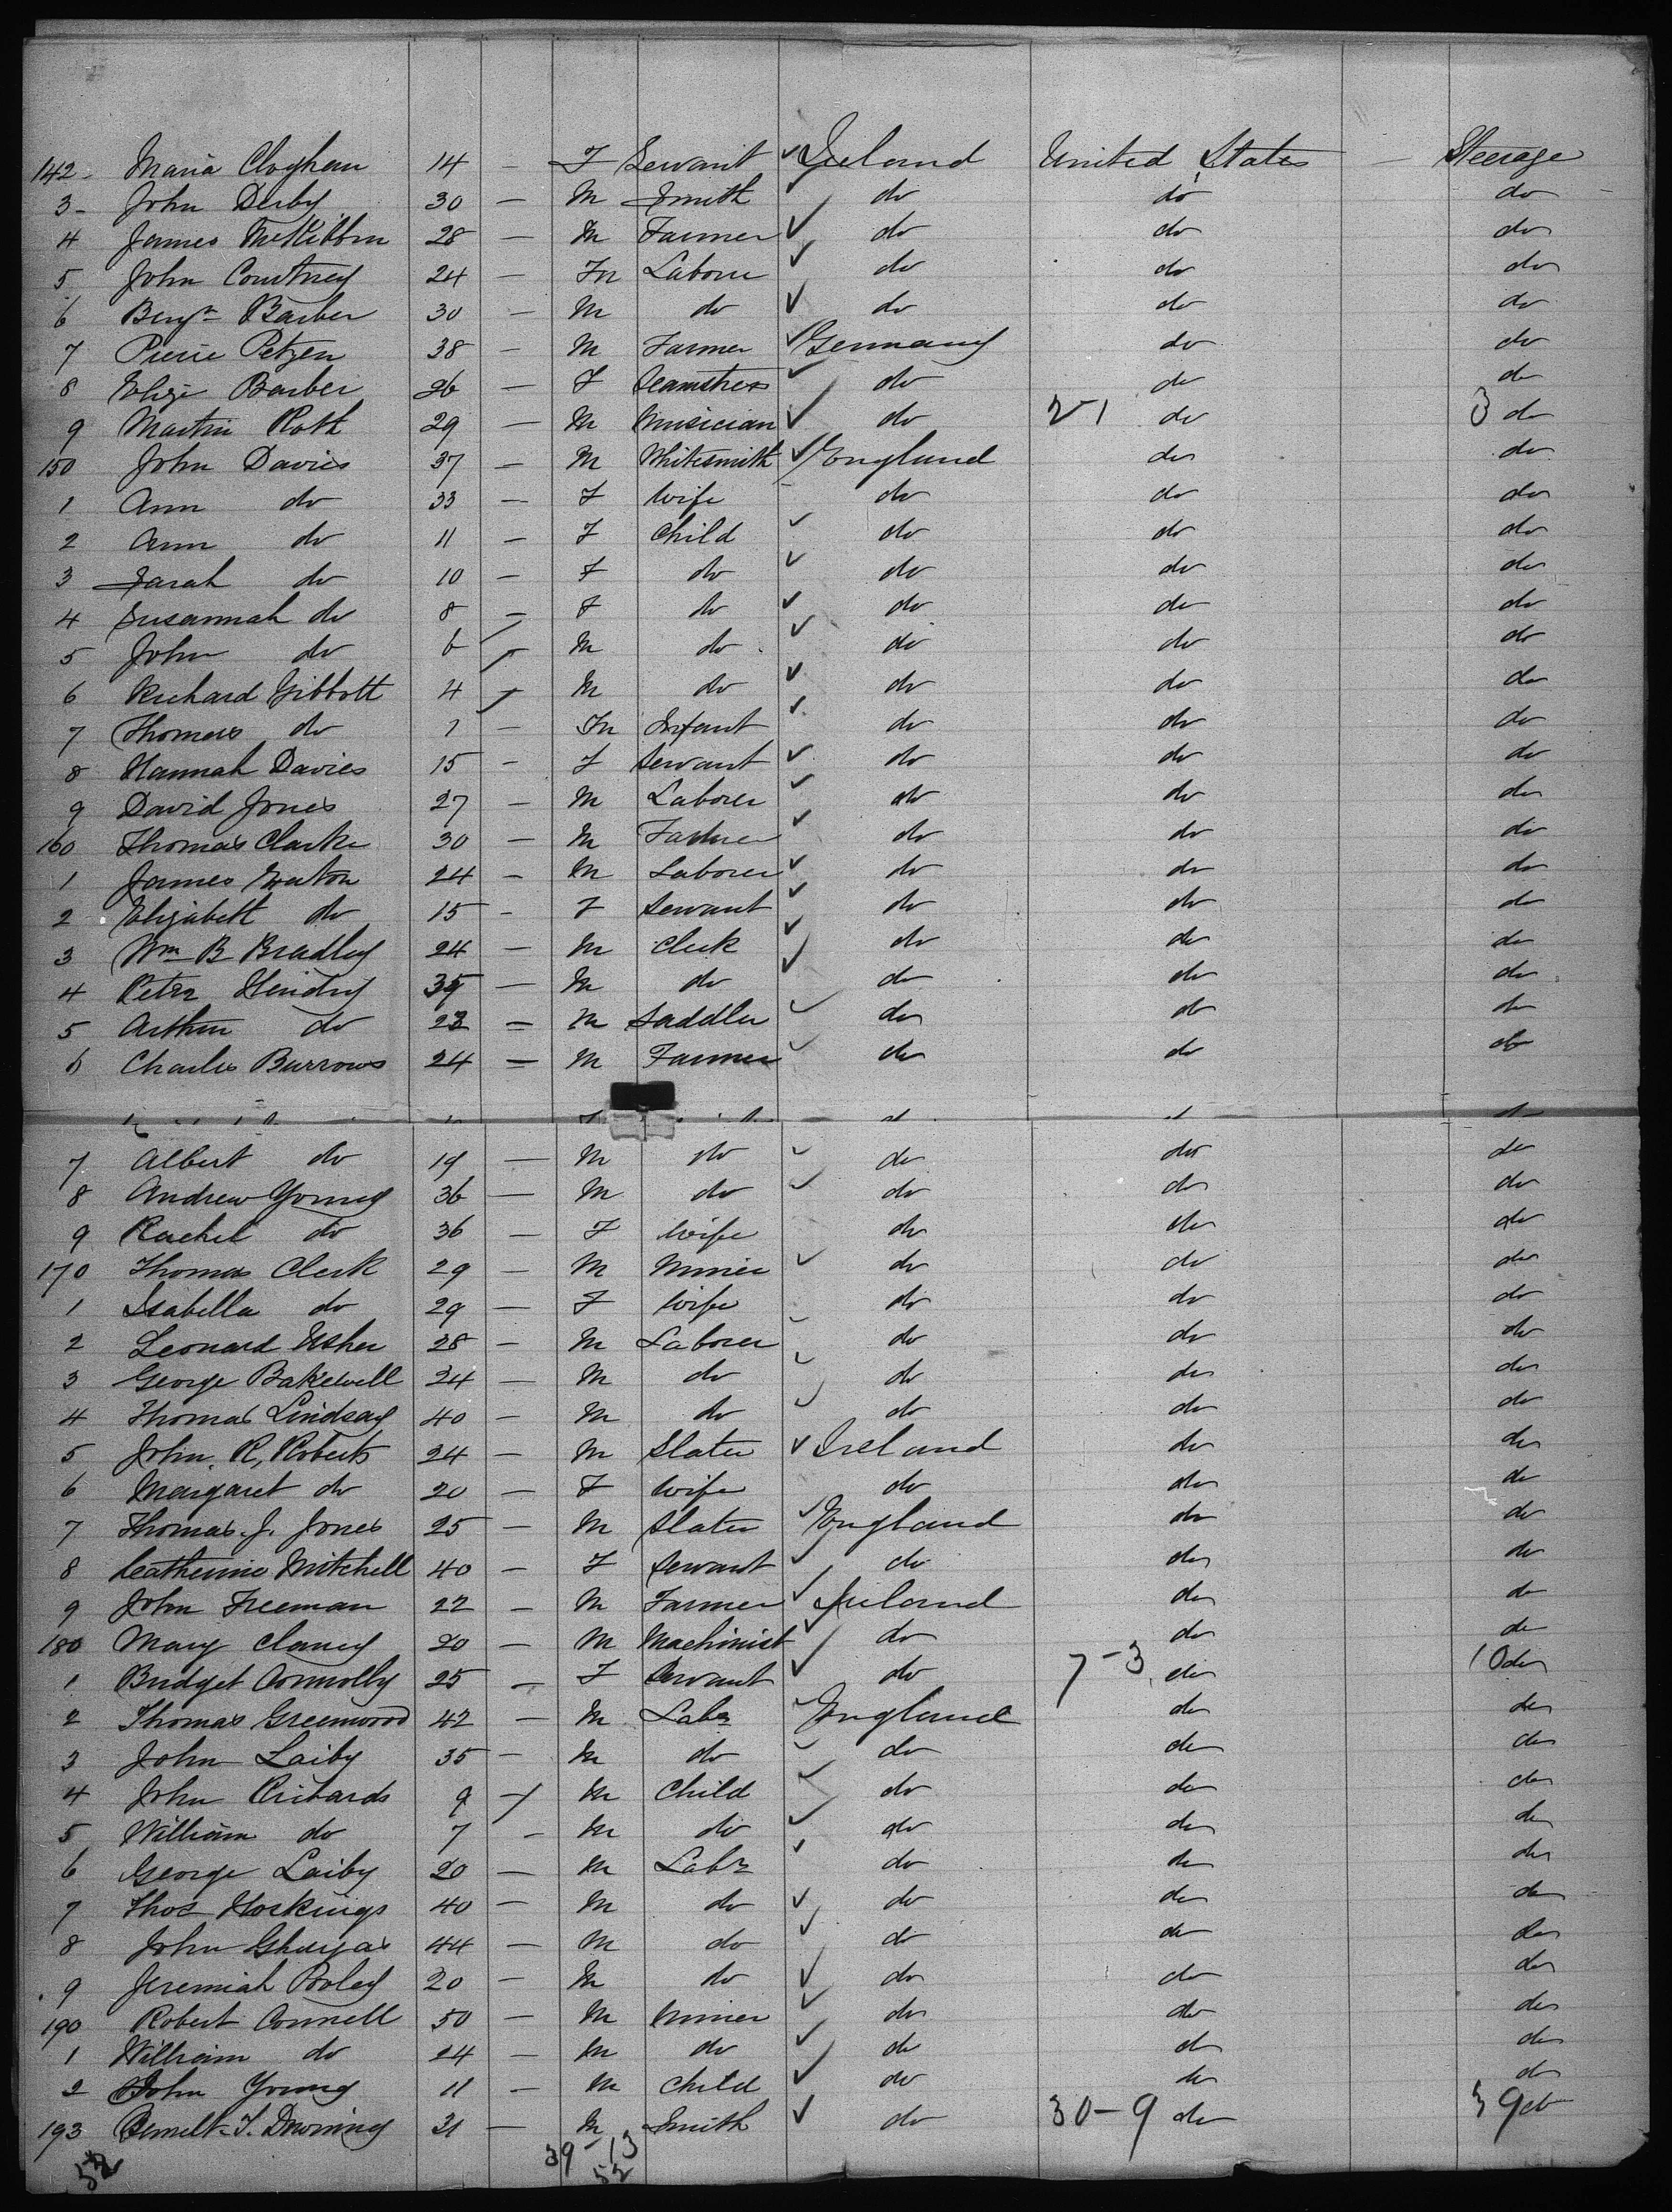 142 - Maria Cloghan 14 - F Servant ✓ Ireland United States - Steerage
3 - John Derby 30 - M Smith ✓ do do do
4 James McKibbin 28 - M Farmer ✓ do do do
5 John Courtney 24 - M Laborer ✓ do do do
6 Benjn Barber 30 - M do ✓ do do do
7 Pierre Petzen 38 - M Farmer ✓ Germany do do
8 Eliza Barber 26 - F Seamstress ✓ do do do
9 Martin Roth 29 - M Musician ✓ do 2-1 do 3 do
150 John Davies 37 - M Whitesmith ✓ England do do
1 Ann do 33 - F Wife - do do do
2 Ann do 11 - F Child ✓ do do do
3 Sarah do 10 - F do ✓ do do do
4 Susannah do 8 - F do ✓ do do do
5 John do 6 - M do ✓ do do do
6 Richard Gibbott 4 - M do ✓ do do do
7 Thomas do 1 - M Infant ✓ do do do
8 Hannah Davies 15 - F Servant ✓ do do do
9 David Jones 27 - M Laborer ✓ do do do
160 Thomas Clarke 30 - M Farmer ✓ do do do
1 James Eaton 24 - M Laborer ✓ do do do
2 Elizabeth do 15 - F Servant ✓ do do do
3 Wm B Bradley 24 - M Clerk ✓ do do do
4 Peter Hendry 35 - M do ✓ do do do
5 Arthur do 23 - M Saddler ✓ do do do
6 Charles Burrows 24 - M Farmer ✓ do do do
7 Albert do 19 - M do ✓ do do do
8 Andrew Young 36 - M do ✓ do do do
9 Rachel do 36 - F Wife do do do
170 Thomas Clerk 29 - M Miner ✓ do do do
1 Isabella do 29 - F Wife do do do
2 Leonard Usher 28 - M Laborer ✓ do do do
3 George Bakewell 24 - M do ✓ do do do
4 Thomas Lindsay 40 - M do ✓ do do do
5 John R, Roberts 24 - M Slater ✓ Ireland do do
6 Margaret do 20 - F Wife do do do
7 Thomas. J. Jones 25 - M Slater ✓ England do do
8 Catherine Mitchell 40 - F Servant ✓ do do do
9 John Freeman 22 - M Farmer ✓ Ireland do do
180 Mary Clancy 20 - M Machinist ✓ do do do
1 Bridget Connolly 25 - F Servant ✓ do 7-3 do 10 do
2 Thomas Greenwood 42 - M Labr ✓ England do do
3 John Laiby 35 - M do ✓ do do do
4 John Richards 9 - M Child ✓ do do do
5 William do 7 - M do ✓ do do do
6 George Laiby 20 - M Labr ✓ do do do
7 Thos Hoskings 40 - M do ✓ do do do
8 John 44 - M do ✓ do do do
9 Jeremiah Pooley 20 - M do ✓ do do do
190 Robert Connell 50 - M Miner ✓ do do do
1 William do 24 - M do ✓ do do do
2 John Young 11 - M Child ✓ do do do
193 T. Downing 31 - M Smith ✓ do 30-9 do 39 do
52 39-13
52